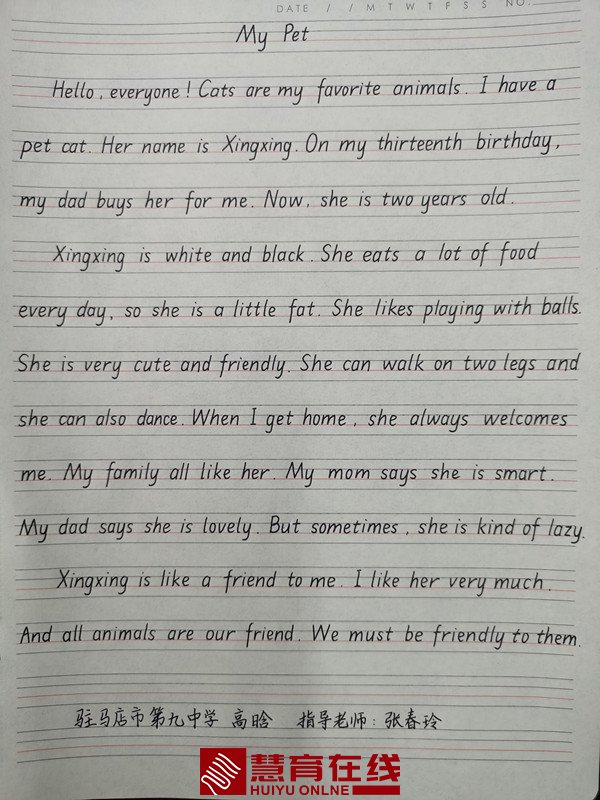 DATE / / M T W T F S S NO.
My Pet
Hello, everyone! Cats are my favorite animals. I have a
pet cat. Her name is Xingxing. On my thirteenth birthday,
my dad buys her for me. Now, she is two years old.
Xingxing is white and black. She eats a lot of food
every day, so she is a little fat. She likes playing with balls.
She is very cute and friendly. She can walk on two legs and
she can also dance. When I get home, she always welcomes
me. My family all like her. My mom says she is smart.
My dad says she is lovely. But sometimes, she is kind of lazy.
Xingxing is like a friend to me. I like her very much.
And all animals are our friend. We must be friendly to them.
驻马店市第九中学 高晗 指导老师：张春玲
慧育在线
HUIYU ONLINE